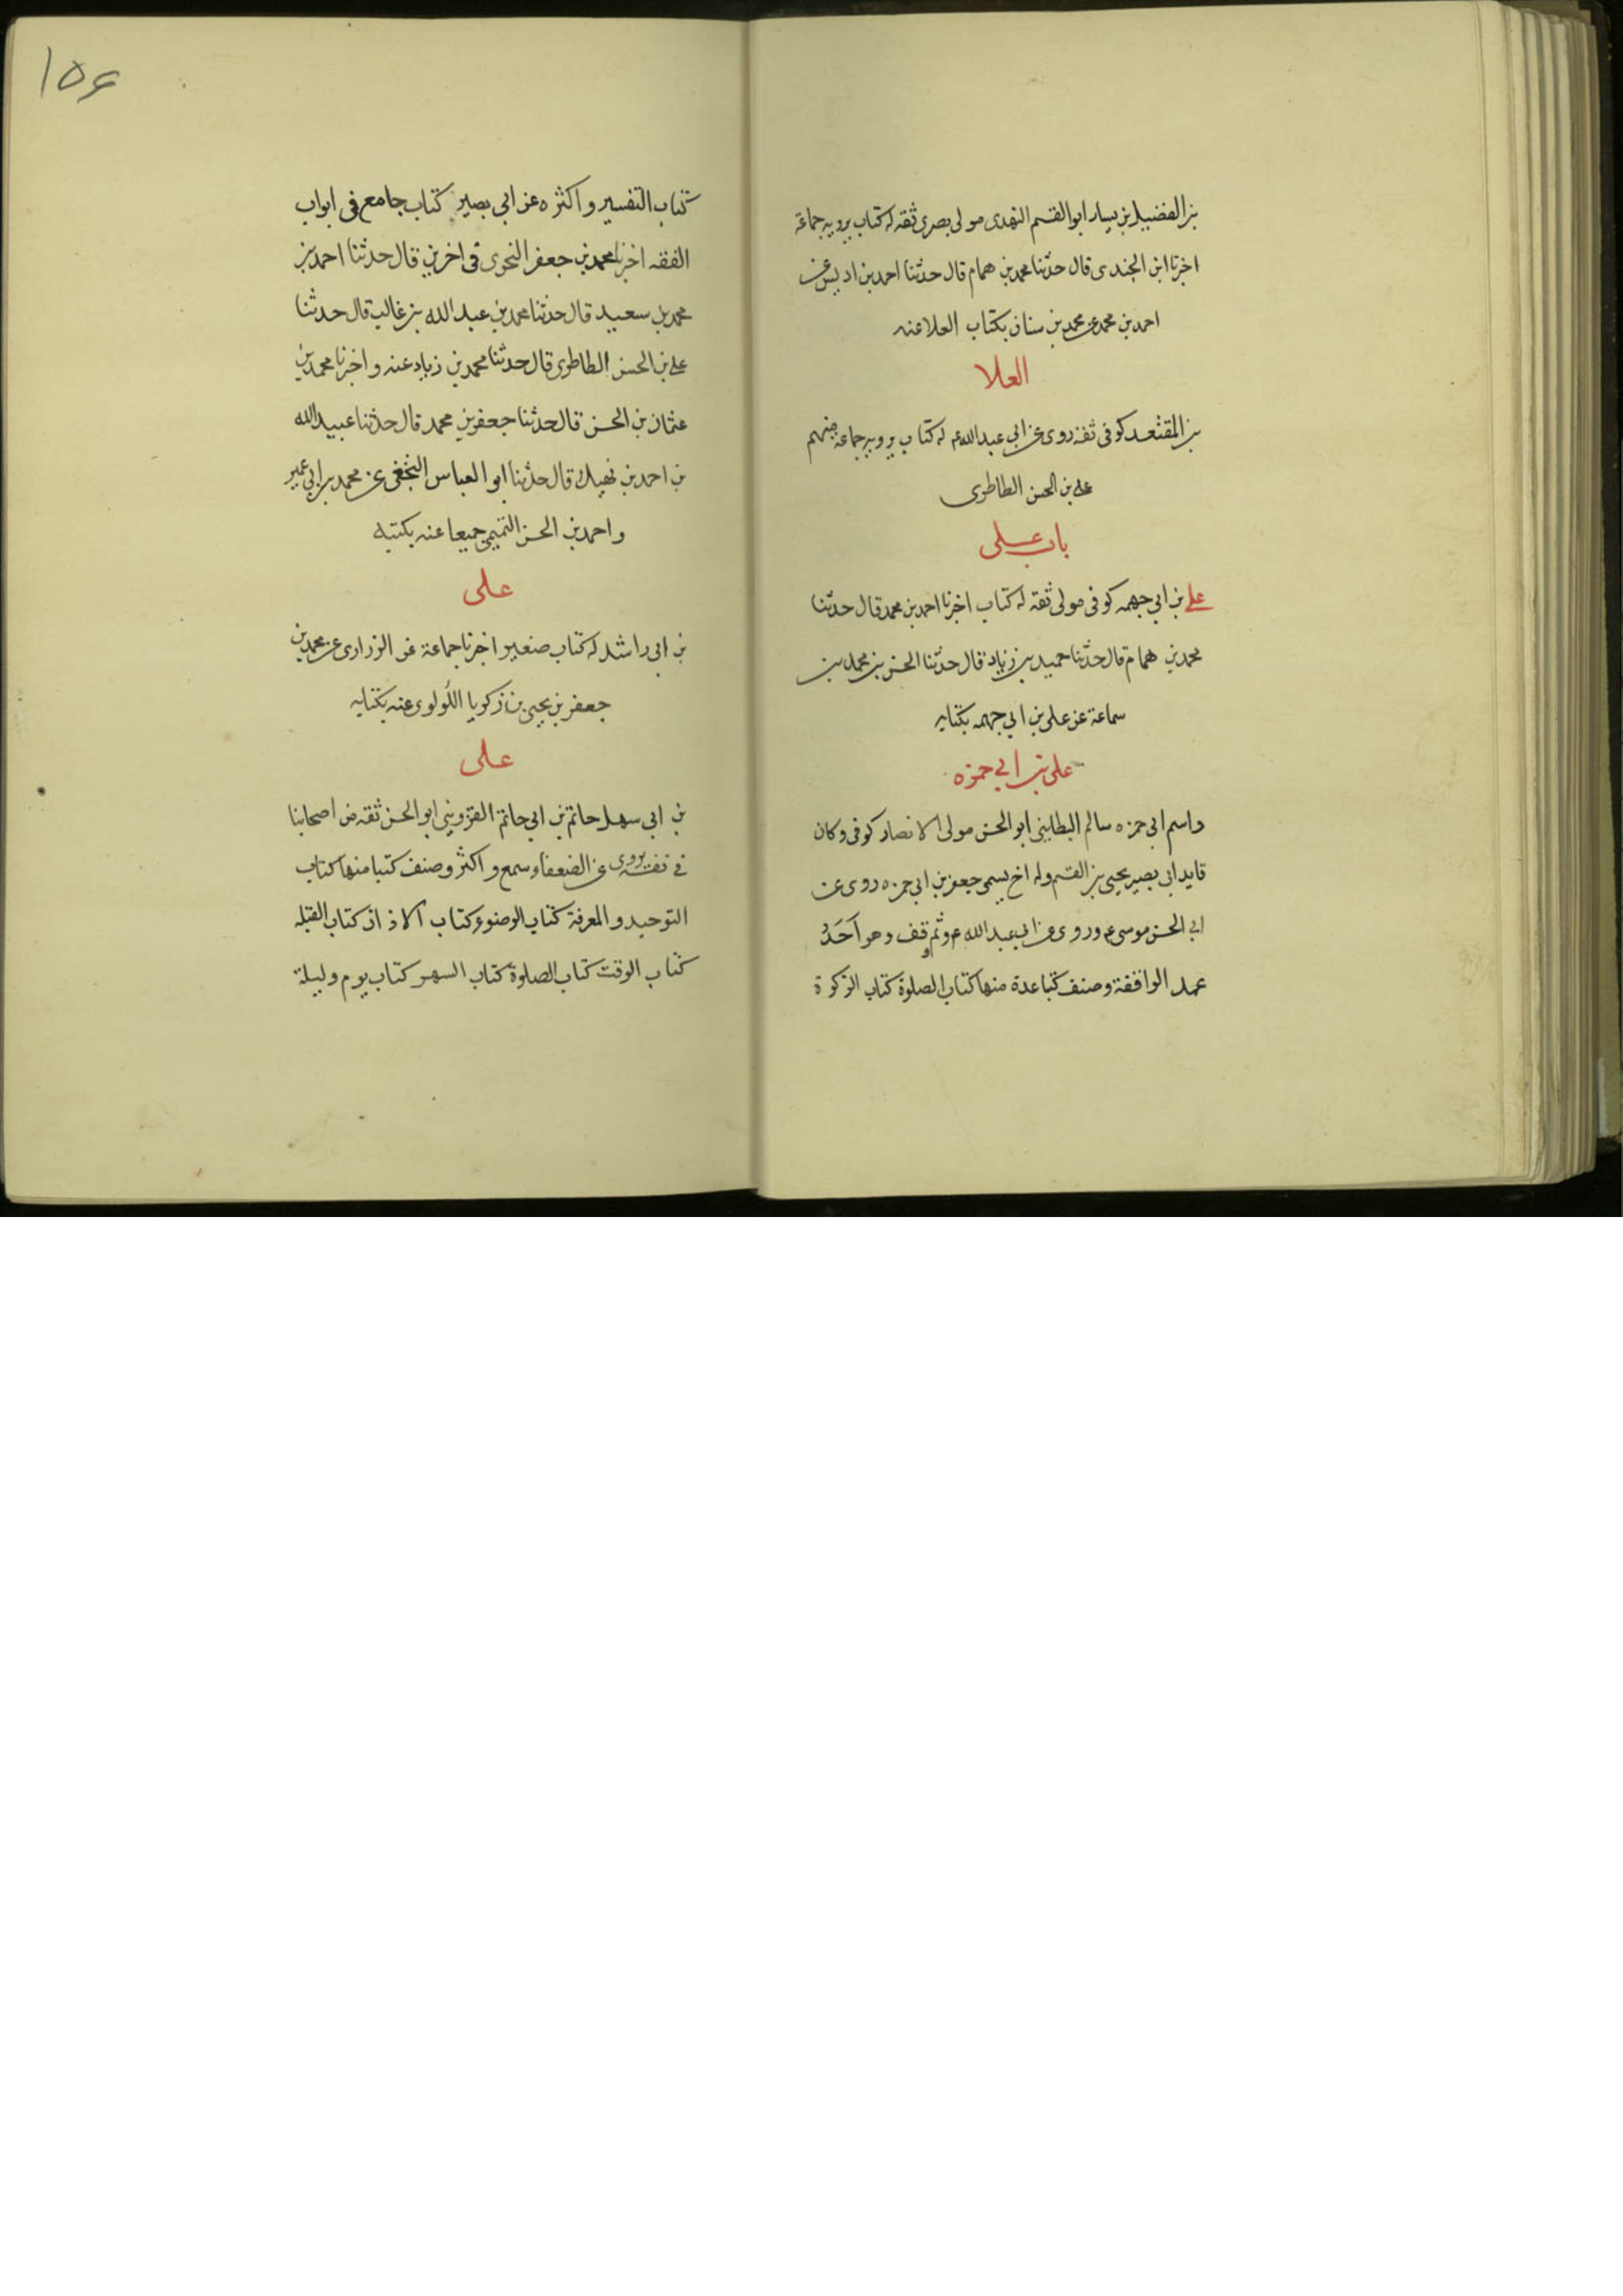 بن الفضيل بن يسار ابو القسم النهدى مولى بصرى ثقه له كتاب يرويه جماعة
اخبرنا ابن الجندى قال حدثنا محمد بن همام قال حدثنا احمد بن ادريس عن
احمد بن محمد عن محمد بن سنان بكتاب العلا عنه
العلا
بن المقعد كوفى ثقه روى عن ابى عبد الله ع له كتاب يرويه جماعة منهم
على بن الحسن الطاطرى
باب على
على بن ابى جهمه كوفى مولى ثقه له كتاب اخبرنا احمد بن محمد قال حدثنا
محمد بن همام قال حدثنا حميد بن زياد قال حدثنا الحسن بن محمد بن
سماعة عن على بن ابى جهمه بكتابه
على بن ابى حمزه
واسم ابى حمزه سالم البطاينى ابو الحسن مولى الانصار كوفى وكان
قايد ابى بصير يحيى بن القسم وله اخ يسمى جعفر بن ابى حمزه روى عن
ابى الحسن موسى ع وروى عن ابى عبد الله ع وثم وقف وهو اَحَدُ
عمد الواقفة وصنف كتبا عدة منها كتاب الصلوة كتاب الزكوة
١٥۶
كتاب التفسير واكثره عن ابى بصير كتاب جامع فى ابواب
الفقه اخبرنا محمد بن جعفر النحوى فى اخرين قال حدثنا احمد بن
محمد بن سعيد قال حدثنا محمد بن عبد الله بن غالب قال حدثنا
على بن الحسن الطاطرى قال حدثنا محمد بن زياد عنه واخبرنا محمد بن
عثمان بن الحسن قال حدثنا جعفر بن محمد قال حدثنا عبيد الله
بن احمد بن نهيك قال حدثنا ابو العباس النخعى عن محمد بن ابى عمير
واحمد بن الحسن التميمى جميعا عنه بكتبه
على
بن ابى راشد له كتاب صغير اخبرنا جماعة عن الزرارى عن محمد بن
جعفر بن يحيى بن زكريا اللولوى عنه بكتابه
على
بن ابى سهل حاتم بن ابى حاتم القزوينى ابو الحسن ثقه من اصحابنا
فى نفسه يروى عن الضعفاء سمع واكثر وصنف كتبا منها كتاب
التوحيد والمعرفة كتاب الوضوء كتاب الاذان كتاب القبله
كتاب الوقت كتاب الصلوة كتاب السهر كتاب يوم وليلة